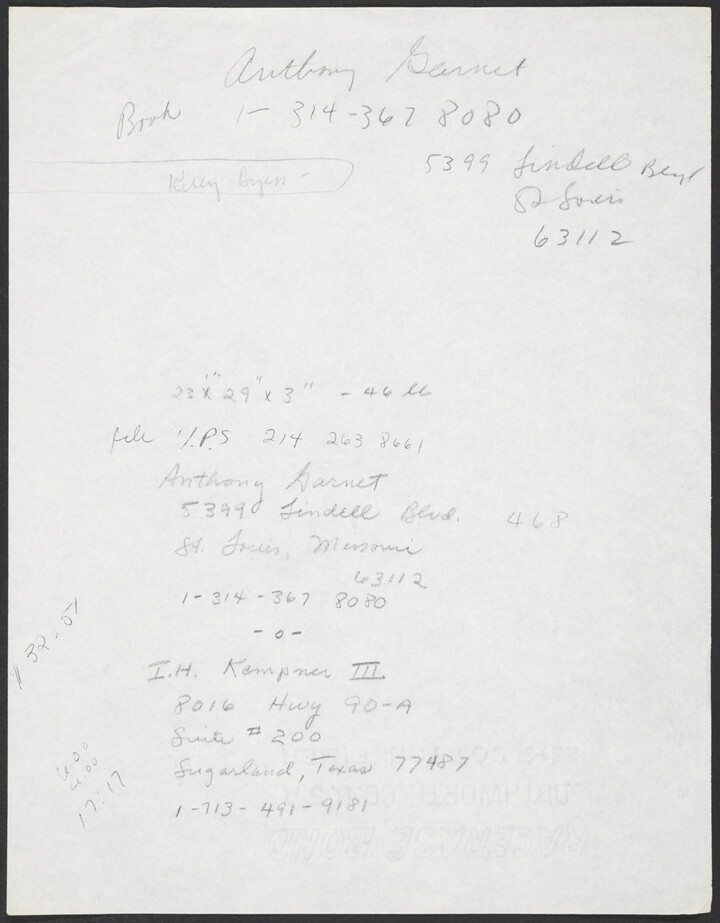 Anthony Garnet
Book 1-314-367 8080
5399 Lindell Blvd
St Louis
63112
Kelly
23" x 29" x 3" - 46 lb
U.P.S 214 263 8661
Anthony Garnet
5399 Lindell Blvd. 468
St. Louis, Missouri
63112
1-314-367 8080
-o-
I.H. Kempner III.
8016 Hwy 90-A
Suite # 200
Sugarland, Texas 77487
1-713-491-9181
6.00
17.17
RACERASE BOND